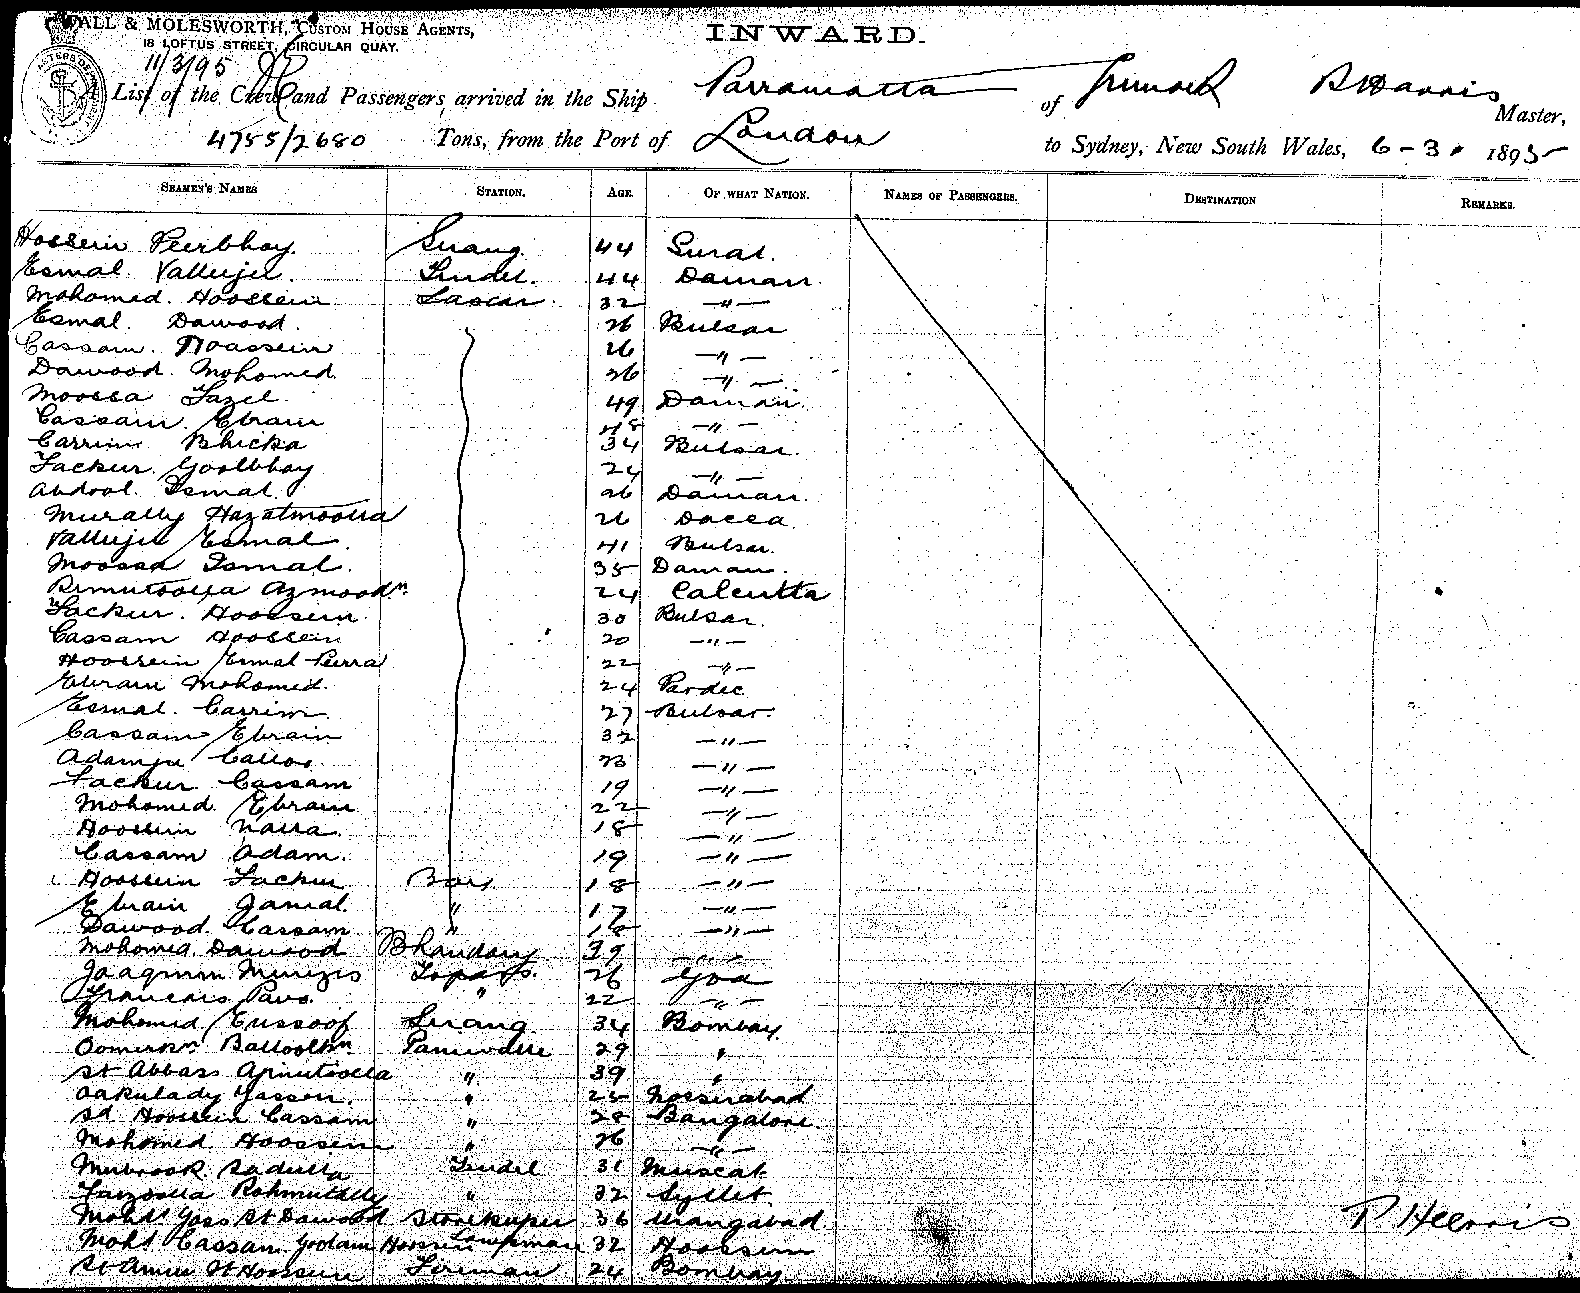 ALL & MOLESWORTH, CUSTOM HOUSE AGENTS,
18 LOFTUS STREET, CIRCULAR QUAY.
INWARD.
11/3/95
A List of the Crew and Passengers, arrived in the Ship Parramatta of Greenock Harris Master,
4755/2680 Tons, from the Port of London to Sydney, New South Wales, 6-3. 1895
SEAMEN'S NAMES STATION. AGE. OF WHAT NATION. NAMES OF PASSENGERS. DESTINATION REMARKS.
Hossein Peerbhoy. Serang. 44 Surat.
Esmal Vallejee Tindel. 44 Daman
Mohomed Hoossein Lascar 32 -"-
Esmal. Dawood. 26 Bulsar
Cassam. Hoossein 26 -"-
Dawood. Mohomed. 26 -"-
Moossa Fazel 49 Daman
Cassam. Ebram 48 -"-
Carrim Bhicka 34 Bulsar.
Fackur. Goolbhoy 24 -"-
Abdool Esmal 26 Daman
Murally 26 Dacca
Vallejee Esmal 41 Bulsar.
Moossa Esmal. 35 Daman.
Azmood 24 Calcutta
Fackur. Hoossein 30 Bulsar
Cassam Hoossein 20 -"-
Hoossein Esmal Peera 22 -"-
Ebram Mohomed. 24 Pardee
Esmal. Carrim 27 Bulsar.
Cassam Ebram 32 -"-
Adamjee 23 -"-
Fackur Cassam 19 -"-
Mohomed Ebram 22 -"-
Hoossein 18 -"-
Cassam Adam. 19 -"-
Hoossein Fackur Boy 18 -"-
Ebram Jamal. " 17 -"-
Dawood Cassam " 18 -"-
Mohomed Dawood Bhandary 39 "
Joaquim Menezes Topass. 26 Goa
Francais Pavo. " 22 -"-
Mohomed Eussoof Serang 34 Bombay
29 "
St Abbas " 39 "
Yassen. " 25 Nossirabad
Sd Hoossein Cassam " 28 Bangalore
Mohomed Hoossein " 26 -"-
Mubrook Sadulla Tindel 31 Muscat
Fazoolla Rohmutally " 32 Syllet
Mohd St Dawood Storekeeper 36 Urangabad
Mohd Cassam Goolam Hoossein Lampman 32 Hoossein
St Amir St Hoossein Fireman 24 Bombay
P Harris